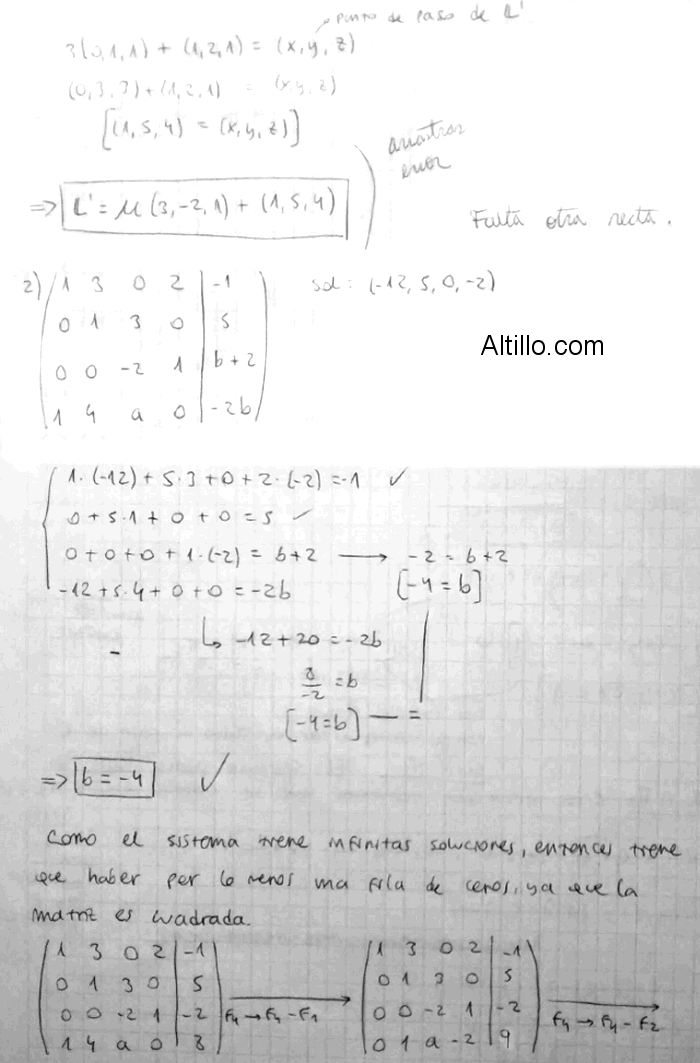 punto de paso de L'
3(0,1,1) + (1,2,1) = (x,y,z)
(0,3,3)+(1,2,1) = (x,y,z)
[(1,5,4) = (x,y,z)]
arrastras
error
⇒ L' = μ(3,-2,1) + (1,5,4)
Falta otra recta.
2) 1 3 0 2 | -1 sol: (-12, 5, 0, -2)
0 1 3 0 | 5
Altillo.com
0 0 -2 1 | b+2
1 4 a 0 | -2b
1·(-12) + 5·3 + 0 + 2·(-2) = -1 ✓
0 + 5·1 + 0 + 0 = 5 ✓
0 + 0 + 0 + 1·(-2) = b+2 → -2 = b+2
-12 + 5·4 + 0 + 0 = -2b [-4 = b]
↳ -12 + 20 = -2b
8/-2 = b
[-4 = b] — =
⇒ b = -4 ✓
Como el sistema tiene infinitas soluciones, entonces tiene
que haber por lo menos una fila de ceros, ya que la
matriz es cuadrada.
1 3 0 2 | -1 1 3 0 2 | -1
0 1 3 0 | 5 0 1 3 0 | 5
0 0 -2 1 | -2 F4 → F4 - F1 0 0 -2 1 | -2 F4 → F4 - F2
1 4 a 0 | 8 0 1 a -2 | 9